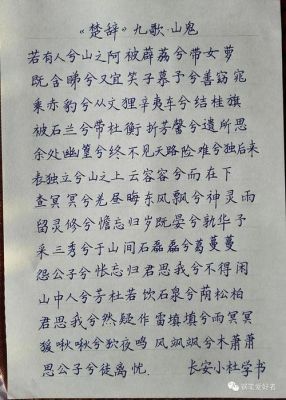 《楚辞》九歌·山鬼
若有人兮山之阿被薜荔兮带女萝
既含睇兮又宜笑子慕予兮善窈窕
乘赤豹兮从文狸辛夷车兮结桂旗
被石兰兮带杜衡折芳馨兮遗所思
余处幽篁兮终不见天路险难兮独后来
表独立兮山之上云容容兮而在下
杳冥冥兮羌昼晦东风飘兮神灵雨
留灵修兮憺忘归岁既晏兮孰华予
采三秀兮于山间石磊磊兮葛蔓蔓
怨公子兮怅忘归君思我兮不得闲
山中人兮芳杜若饮石泉兮荫松柏
君思我兮然疑作雷填填兮雨冥冥
猨啾啾兮狖夜鸣风飒飒兮木萧萧
思公子兮徒离忧. 长安小杜学书
钢笔爱好者